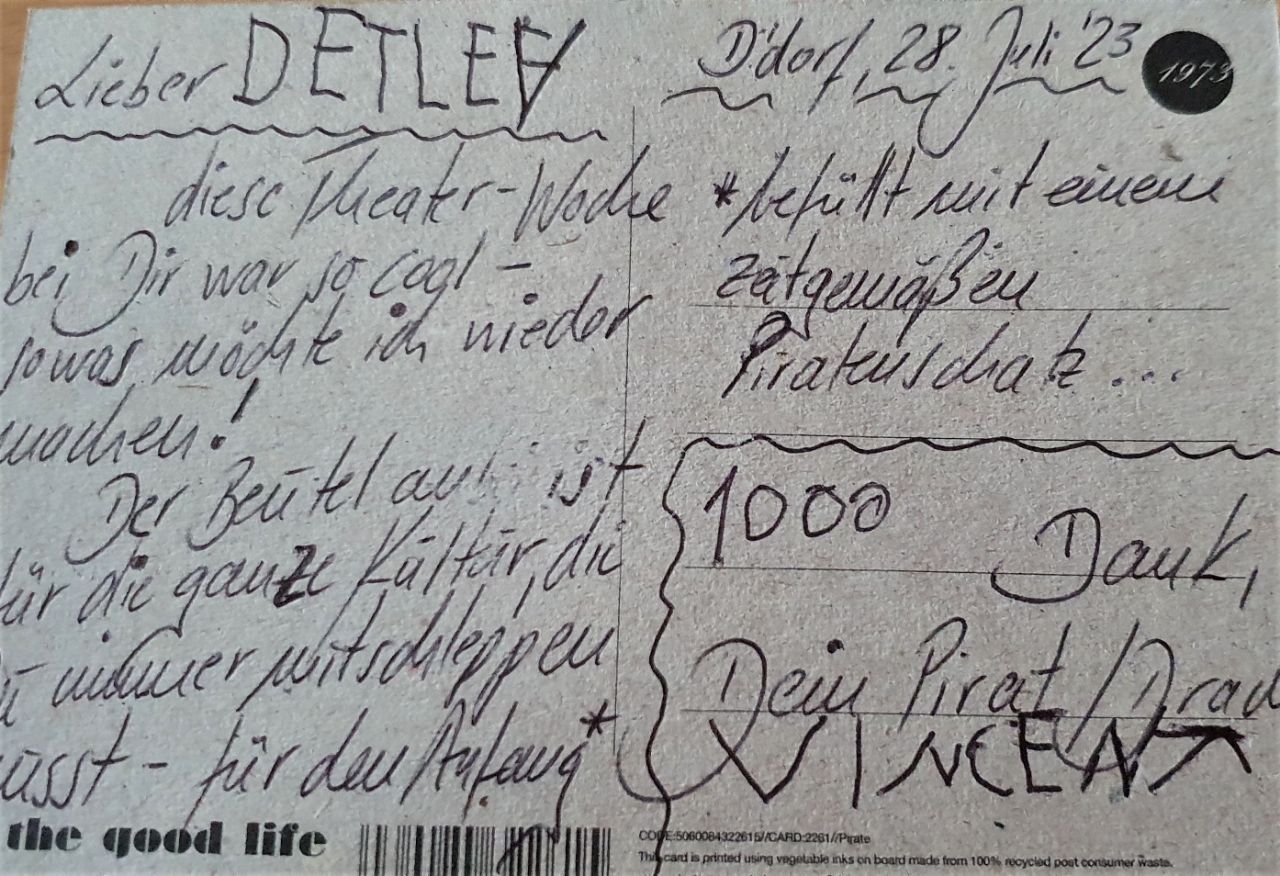 Lieber DETLEF
diese Theater-Woche
bei Dir war so cool –
sowas möchte ich wieder
machen!
Der Beutel ist
für die ganze Kultur, die
immer mitschleppen
usst – für den Anfang*
D'dorf, 28. Juli '23
1973
*befüllt mit einem
zeitgemäßen
Piratenschatz ...
1000 Dank,
Dein Pirat /
VINCENT
the good life
CODE:5060084322615//CARD:2261//Pirate
This card is printed using vegetable inks on board made from 100% recycled post consumer waste.